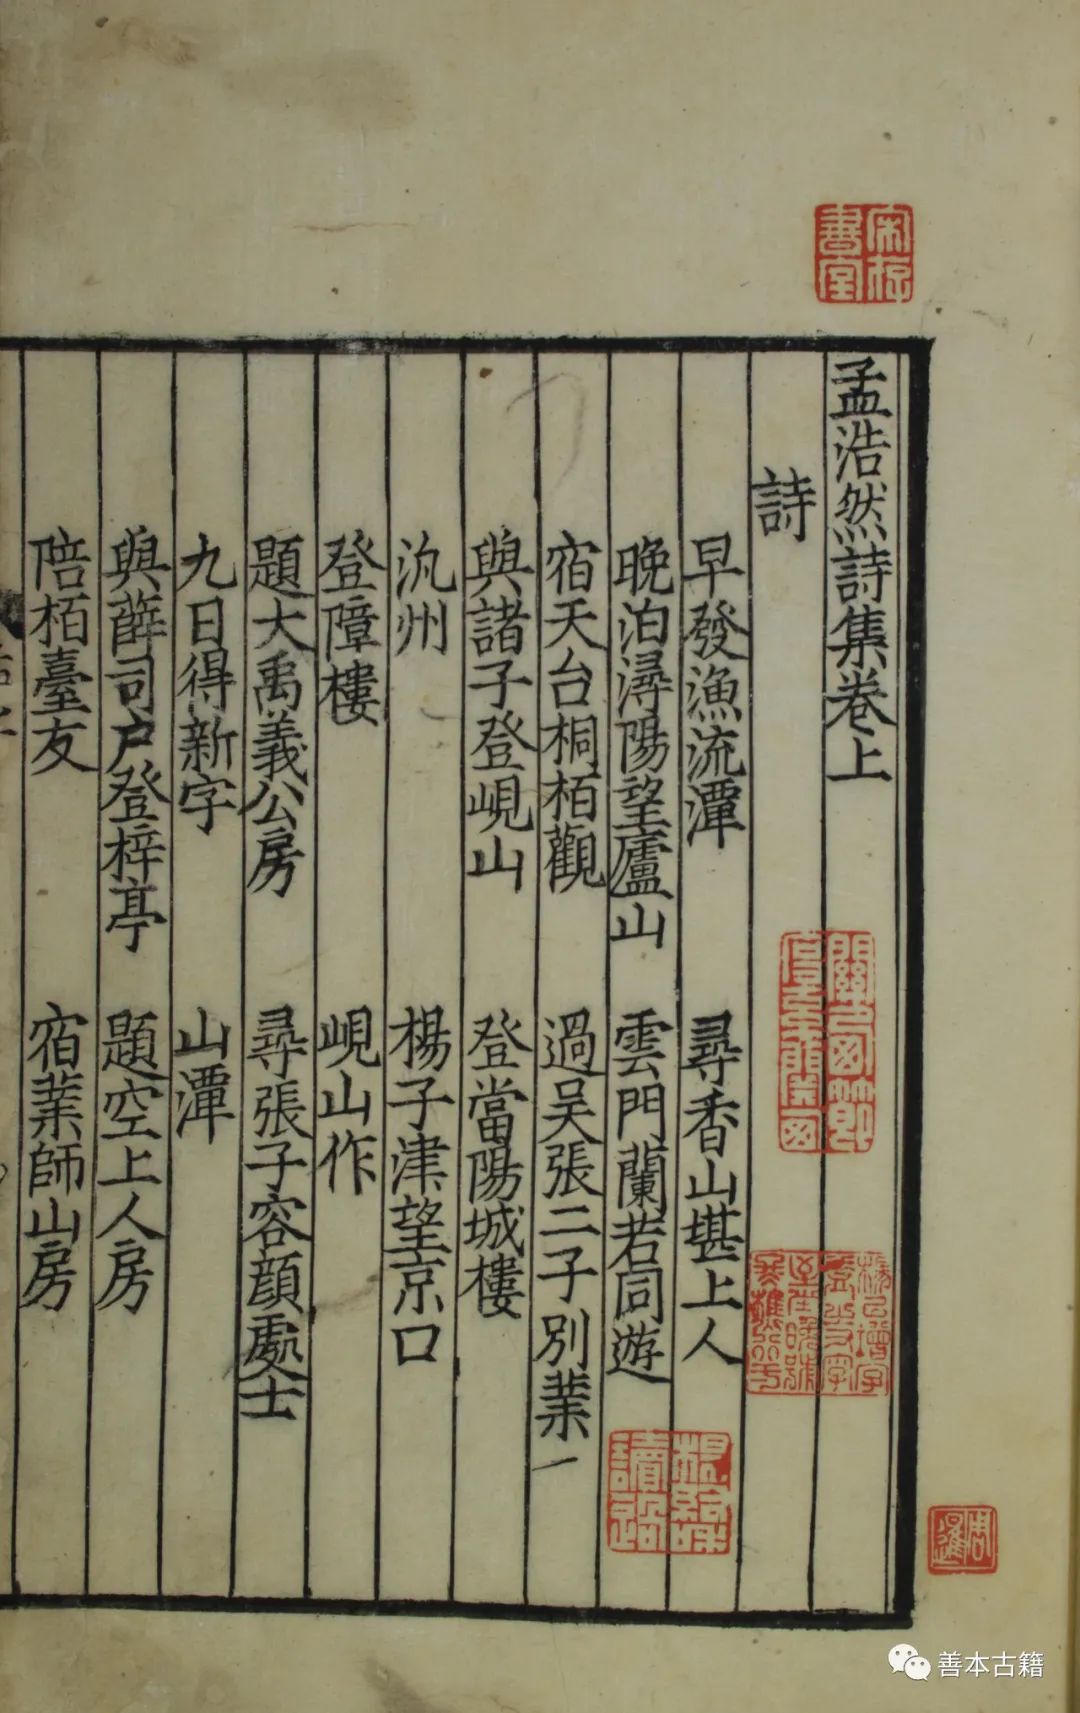 孟浩然詩集卷上
詩
早發漁流潭　尋香山堪上人
晚泊潯陽望廬山　雲門蘭若同遊
宿天台桐栢觀　過吴張二子別業一
與諸子登峴山　登當陽城樓
汎州　楊子津望京口
登障樓　峴山作
題大禹義公房　尋張子容顔處士
九日得新字　山潭
與薛司戶登梓亭　題空上人房
陪栢臺友　宿業師山房
宋存書室
周暹
善本古籍